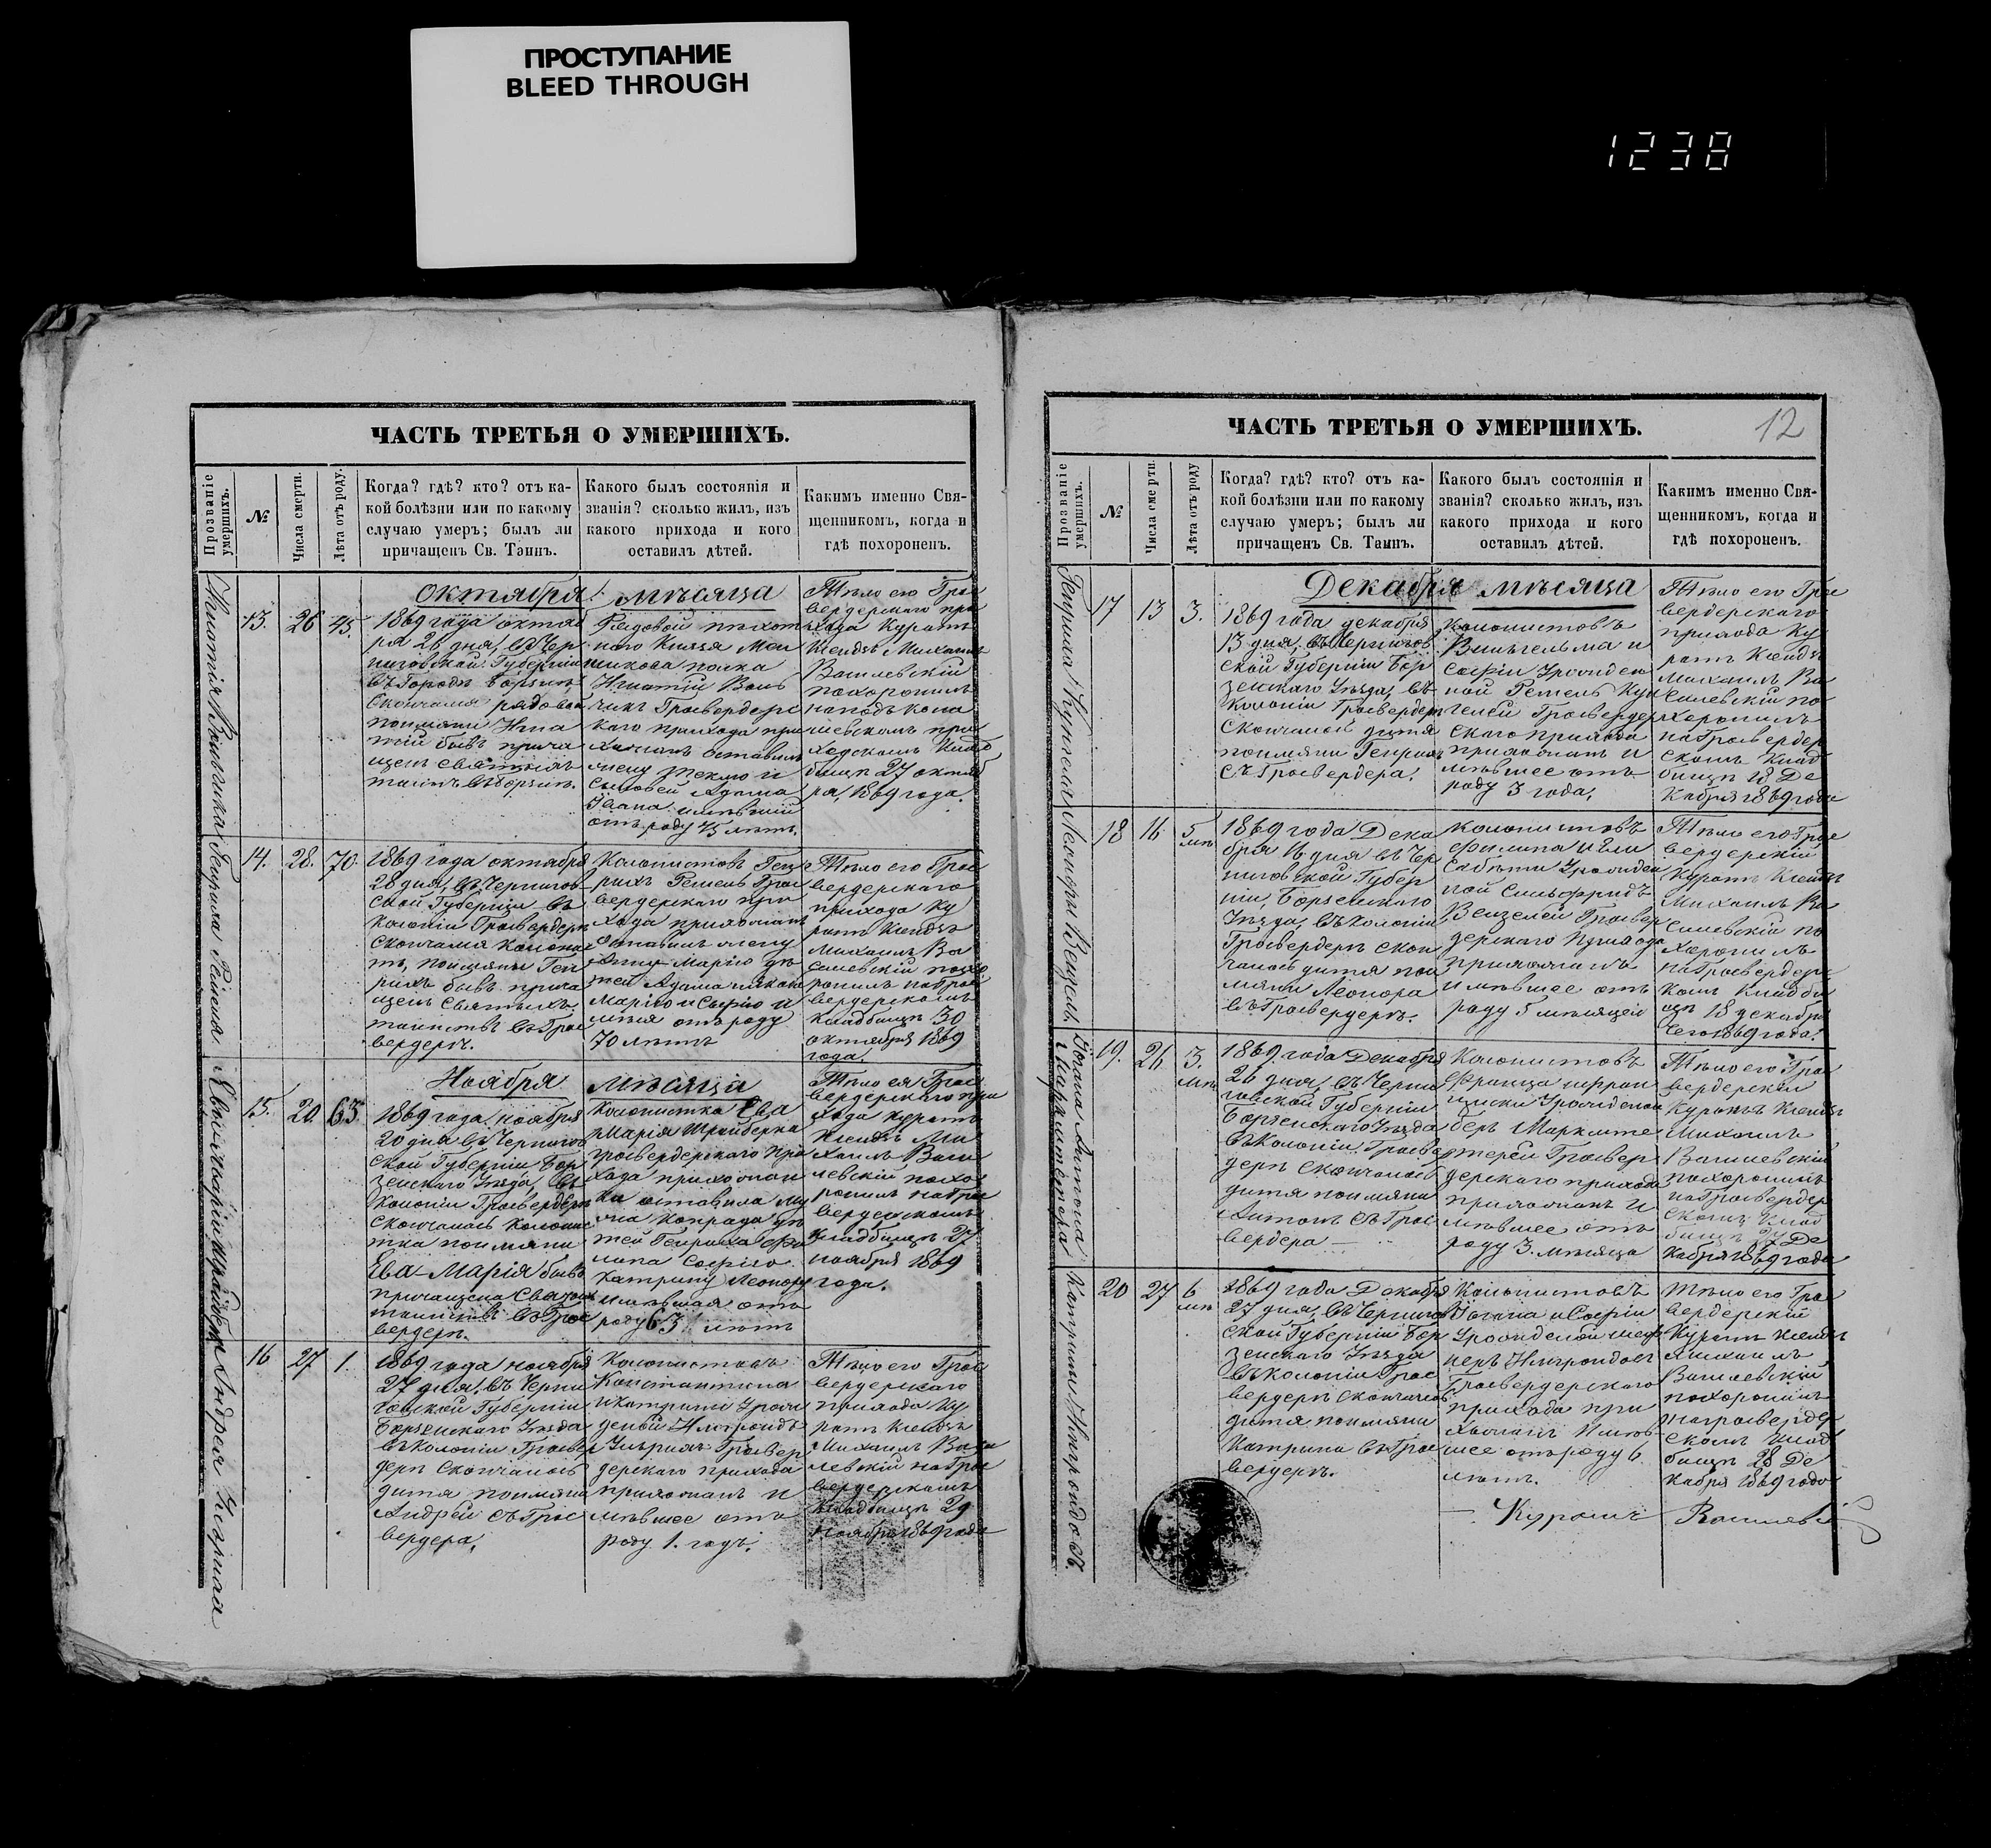 ПРОСТУПАНИЕ
BLEED THROUGH
1238
ЧАСТЬ ТРЕТЬЯ О УМЕРШИХЪ.
Прозваніе умершихъ.
№
Числа смерти.
Лѣта отъ роду.
Когда? гдѣ? кто? отъ ка-
кой болѣзни или по какому
случаю умеръ; былъ ли
причащенъ Св. Таинъ.
Какого былъ состоянія и
званія? сколько жилъ, изъ
какого прихода и кого
оставилъ дѣтей.
Какимъ именно Свя-
щенникомъ, когда и
гдѣ похороненъ.
октября мѣсяца
13. 26 45.
1869 года октяб
ря 26 дня, въ Чер
ниговской Губерніи
въ Городѣ Борзнѣ,
Скончался рядовой
поимяни Игна
тій бывъ прича
щенъ святыхъ
таинъ въ Борзнѣ.
Рядовой пѣхот
наго Князя Мен
шикова полка
Игнатій
каго прихода при
хожанъ оставилъ
жену Теклю и
Сыновей Адама
Ивана имѣвшій
отъ роду 45 лѣтъ.
Тѣло его Грос
вердерскаго при
хода Куратъ
Ксендзъ Михаилъ
Василевскій
похоронилъ
шевскомъ при
ходскомъ клад
бищѣ 27 октяб
ря, 1869 года.
Генриха Ремеля
14. 28. 70.
1869 года октября
28 дня, въ Чернигов
ской Губерніи въ
Колоніи Гросвердеръ
Скончался колонис
тъ, поимяни Ген
рихъ бывъ прича
щенъ Святыхъ
таинствъ въ Грос
вердерѣ.
Колонистовъ Ген
рихъ Ремель Грос
вердерскаго при
хода прихожанъ
Оставилъ жену
Анну-Марію дѣ
тей Адама
Марію и Софію и
мѣя отъ роду
70 лѣтъ
Тѣло его Грос
вердерскаго
прихода Ку
ратъ Ксендзъ
Михаилъ Ва
силевскій похо
ронилъ на Грос
вердерскомъ
Кладбищѣ 30
октября 1869
года.
Ноября мѣсяца
15. 20. 63.
1869 года ноября
20 дня въ Чернигов
ской Губерніи Бор
зенскаго Уѣзда, въ
Колоніи Гросвердеръ
Скончалась колонис
тка поимяни
Ева-Марія бывъ
причащена Святыхъ
таинствъ въ Грос
вердерѣ.
Колонистка Ева
Марія Шрейберка
Гросвердерскаго при
хода прихожан
ка оставила му
жа Конрада дѣ
тей Генриха Фи
липа Софію
Катрину Леонору
имѣвшая отъ
роду 63 лѣтъ
Тѣло ея Грос
вердерскаго при
хода куратъ
Ксендзъ Ми
хаилъ Васи
левскій похо
ронилъ на Грос
вердерскомъ
Кладбищѣ 27
ноября 1869
года.
16 27 1.
1869 года ноября
27 дня, въ Черни
говской Губерніи
Борзенскаго Уѣзда
въ Колоніи Гросвер
деръ Скончалось
дитя поимяни
Андрей въ Грос
вердера.
Колонистовъ
Константина
и Катрини Урож
дерскаго прихода
прихожанъ и
мѣвшее отъ
роду 1. годъ.
Тѣло его Грос
вердерскаго
прихода Ку
ратъ Ксендзъ
Михаилъ Васи
левскій на Грос
вердерскомъ
Кладбищѣ 29
ноября 1869 года
ЧАСТЬ ТРЕТЬЯ О УМЕРШИХЪ.
12
Прозваніе умершихъ.
№
Числа смерти.
Лѣта отъ роду
Когда? гдѣ? кто? отъ ка-
кой болѣзни или по какому
случаю умеръ; былъ ли
причащенъ Св. Таинъ.
Какого былъ состоянія и
званія? сколько жилъ, изъ
какого прихода и кого
оставилъ дѣтей.
Какимъ именно Свя-
щенникомъ, когда и
гдѣ похороненъ.
Декабря мѣсяца
17 13 3.
1869 года декабря
13 дня, въ Чернигов
ской Губерніи Бор
зенскаго Уѣзда, въ
Колоніи Гросвердеръ
Скончалось дитя
поимяни Генрихъ
въ Гросвердера.
Колонистовъ
Вильгельма и
Софіи Урожден
ной Ремель Кун
гелей Гросвердер
скаго прихода
прихожанъ и
мѣвшее отъ
роду 3 года.
Тѣло его Грос
вердерскаго
прихода Ку
ратъ Ксендзъ
Михаилъ Ва
силевскій по
хоронилъ
на Гросвердер
скомъ клад
бищѣ 18 Де
кабря 1869 года
Леоноры Вензель
18 16 5 мѣ
1869 года Дека
бря 16 дня въ Чер
ниговской Губер
ніи, Борзенскаго
Уѣзда, въ Колоніи
Гросвердеръ скон
чалось дитя пои
мяни Леонора
въ Гросвердерѣ.
Колонистовъ
Филипа и Ели
сабеты Урожден
ной
Вензелей Гросвер
дерскаго прихода
прихожанъ
имѣвшее отъ
роду 5 мѣсяцей
Тѣло его Грос
вердерскій
Куратъ Ксендзъ
Михаилъ Ва
силевскій по
хоронилъ
на Гросвердерс
комъ кладби
щѣ 18 декабря
сего 1869 года.
19. 26 3. мѣ
1869 года Декабря
26 дня, въ Черни
говской Губерніи
Борзенскаго Уѣзда
въ Колоніи Гросвер
деръ Скончалось
дитя поимяни
Антонъ въ Грос
вердера
Колонистовъ
Франца и Фран
циски Урожденой
дерскаго прихода
прихожанъ и
мѣвшее отъ
роду 3. мѣсяца
Тѣло его Грос
вердерскій
Куратъ Ксендзъ
Михаилъ
Василевскій
похоронилъ
на Гросвердер
скомъ клад
бищѣ 27 Де
кабря 1869 года
20 27 6 мѣ
1869 года Декабря
27 дня, въ Чернигов
ской Губерніи Бор
зенскаго Уѣзда
въ Колоніи Грос
вердеръ скончалось
дитя поимяни
Катрина въ Грос
вердерѣ.
Колонистовъ
Іогана и Софіи
Гросвердерскаго
прихода при
хожанъ Имѣв
шее отъ роду 6
Тѣло его Грос
вердерскій
Куратъ Ксендзъ
Михаилъ
Василевскій
похоронилъ
на Гросвердер
скомъ клад
бищѣ 28 Де
кабря 1869 года
Куратъ Василевскій